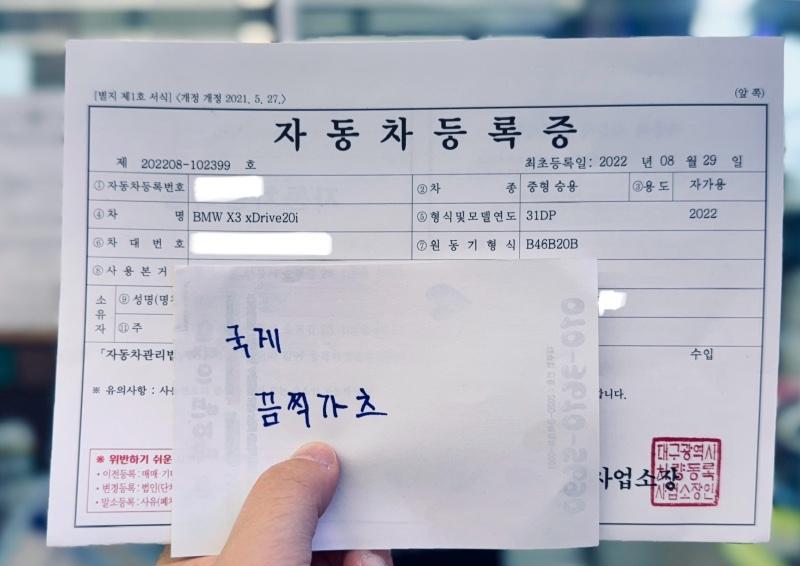 [별지 제1호 서식] <개정 개정 2021. 5. 27.>
(앞 쪽)
자 동 차 등 록 증
제 202208-102399 호
최초등록일: 2022 년 08 월 29 일
① 자동차등록번호
② 차 종
중형 승용
③ 용 도
자가용
④ 차 명
BMW X3 xDrive20i
⑤ 형식 및 모델연도
31DP
2022
⑥ 차 대 번 호
⑦ 원 동 기 형 식
B46B20B
⑧ 사 용 본 거
소 유 자
⑨ 성명(명
⑪ 주
「자동차관리법
수입
※ 유의사항 : 사
니다.
국제
끔찍가츠
010-3610-5690
※ 위반하기 쉬운
• 이전등록: 매매 기
• 변경등록: 법인(단
• 말소등록: 사유(폐차
사업소장
대구광역시
차량등록
사업소장인